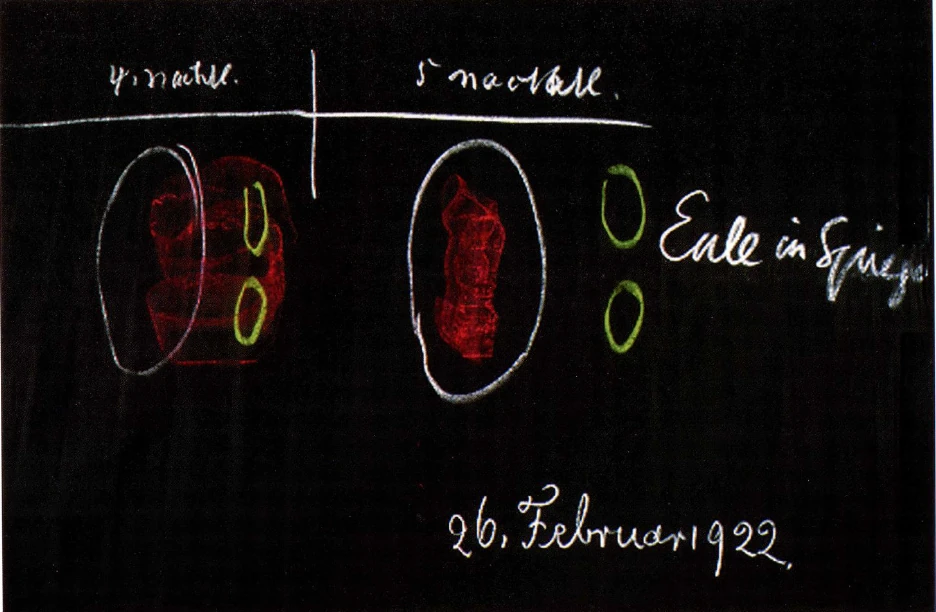 4. nachtl.
5 nachtl.
Eule in Spiegel
26. Februar 1922.